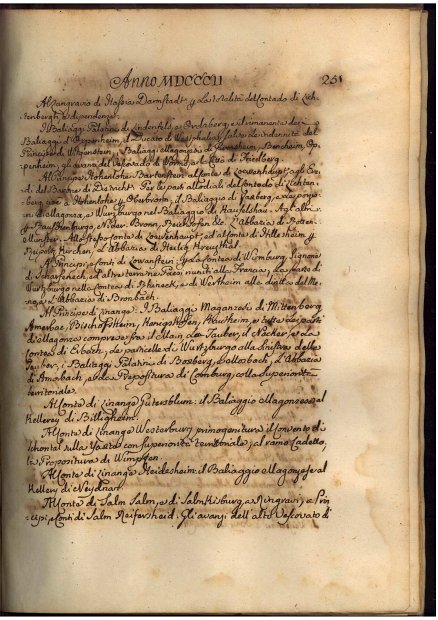 Anno MDCCCII
251
Al Langravio di Hassia Darmstadt p. la totalità del Contado di Lich-
tenbergh, e dipendenze.
Il Baliaggi Palatini di Lindenfels, e Otzberg, e il rimanente de
Baliaggi d'Oppenheim, il Ducato di Westphalia, salva le indennità del
Principe di Witgenstein, i Baliaggi Magonzesi di Gernsheim, Bensheim, Ep-
penheim, gli avanzi del Vescovado di Worms, e la Città di Friedberg.
Al Principe Hohenlohe Bartenstein al Conte di Lowenhaupt, e agli Ere-
di del Barone de Dietricht. Per le parti allodiali del Contado di Lichten-
berg, cioè a Hohenlohe p. Oberbronn, il Baliaggio di Yaxberg, e le porzio-
ni di Magonza, e Wurzburgo nel Baliaggio di
p. Niederbronn, Reichshofen &c. L'Abbazia di Rotten-
Münster. Allo stesso Conte di Lowenhaupt, ed al Conte di Hillesheim p.
Reipoltz Kirchen, L'Abbazia di Heilig Kreuthal.
Ai Principi, e Conti di Lowenstein: p. la Contea di Wirnburg, Signorie
di Scharfeneck, ed altre terre ne Paesi riuniti alla Francia; Le parti di
Wurtzburgo nelle Contee di Rheneck, e di Wertheim alla diritta del Me-
no, e l'Abbazia di Bronbach.
Al Principe di Linange: i Baliaggi Maganzesi di Miltenberg
Amerbac, Bischofsheim, Konigshoffen, Krautheim, e tutte le parti
di Magonza comprese fra il Main, la Tauber, il Necker, e la
Contea di Erbach; Le particelle di Wurtzburgo alla sinistra della
Tauber, i Baliaggi Palatini di Boxberg, e Mosbach, L'Abbazia
di Amorbach, e la Prepositura di Comburg, colla superiorità
territoriale.
Al Conte di Linange Guntersblum: il Baliaggio Magonzese, o al
Kellerey di Billigheim.
Al Conte di Linange Westerburg primogenitura il Convento di
Schontal sulla Yaxt con superiorità territoriale; al ramo Cadetto,
la Prepositura di Wimpfen.
Al Conte di Linange Heidesheim: il Baliaggio Magonzese, o al
Kellerey di Neydnau.
Al Conte di Salm Salm, e di Salm Kirburg, e Ringravi, e Prin-
cipi, e Conti di Salm Reifersheid. Gli avanzi dell'alto Vescovato di